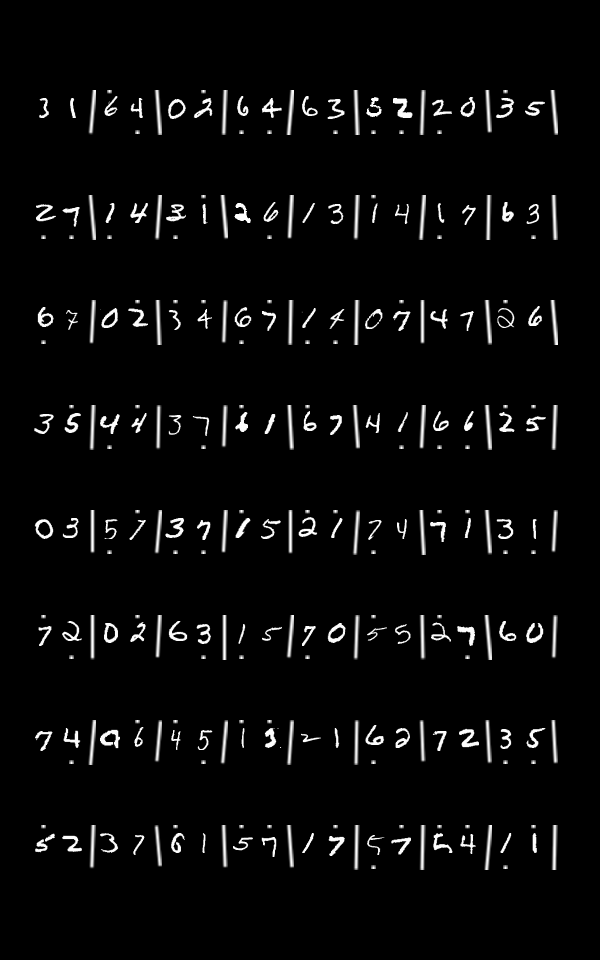 3 1 | 6 4 | 0 2 | 6 4 | 6 3 | 5 2 | 2 0 | 3 5 |
2 7 | 1 4 | 3 1 | 2 6 | 1 3 | 1 4 | 1 7 | 6 3 |
6 7 | 0 2 | 3 4 | 6 7 | 1 4 | 0 7 | 4 7 | 2 6 |
3 5 | 4 4 | 3 7 | 6 1 | 6 7 | 4 1 | 6 6 | 2 5 |
0 3 | 5 7 | 3 7 | 1 5 | 2 1 | 7 4 | 7 1 | 3 1 |
7 2 | 0 2 | 6 3 | 1 5 | 7 0 | 5 5 | 2 7 | 6 0 |
7 4 | 0 6 | 4 5 | 1 3 | 2 1 | 6 2 | 7 2 | 3 5 |
5 2 | 3 7 | 6 1 | 5 7 | 1 7 | 5 7 | 5 4 | 1 1 |